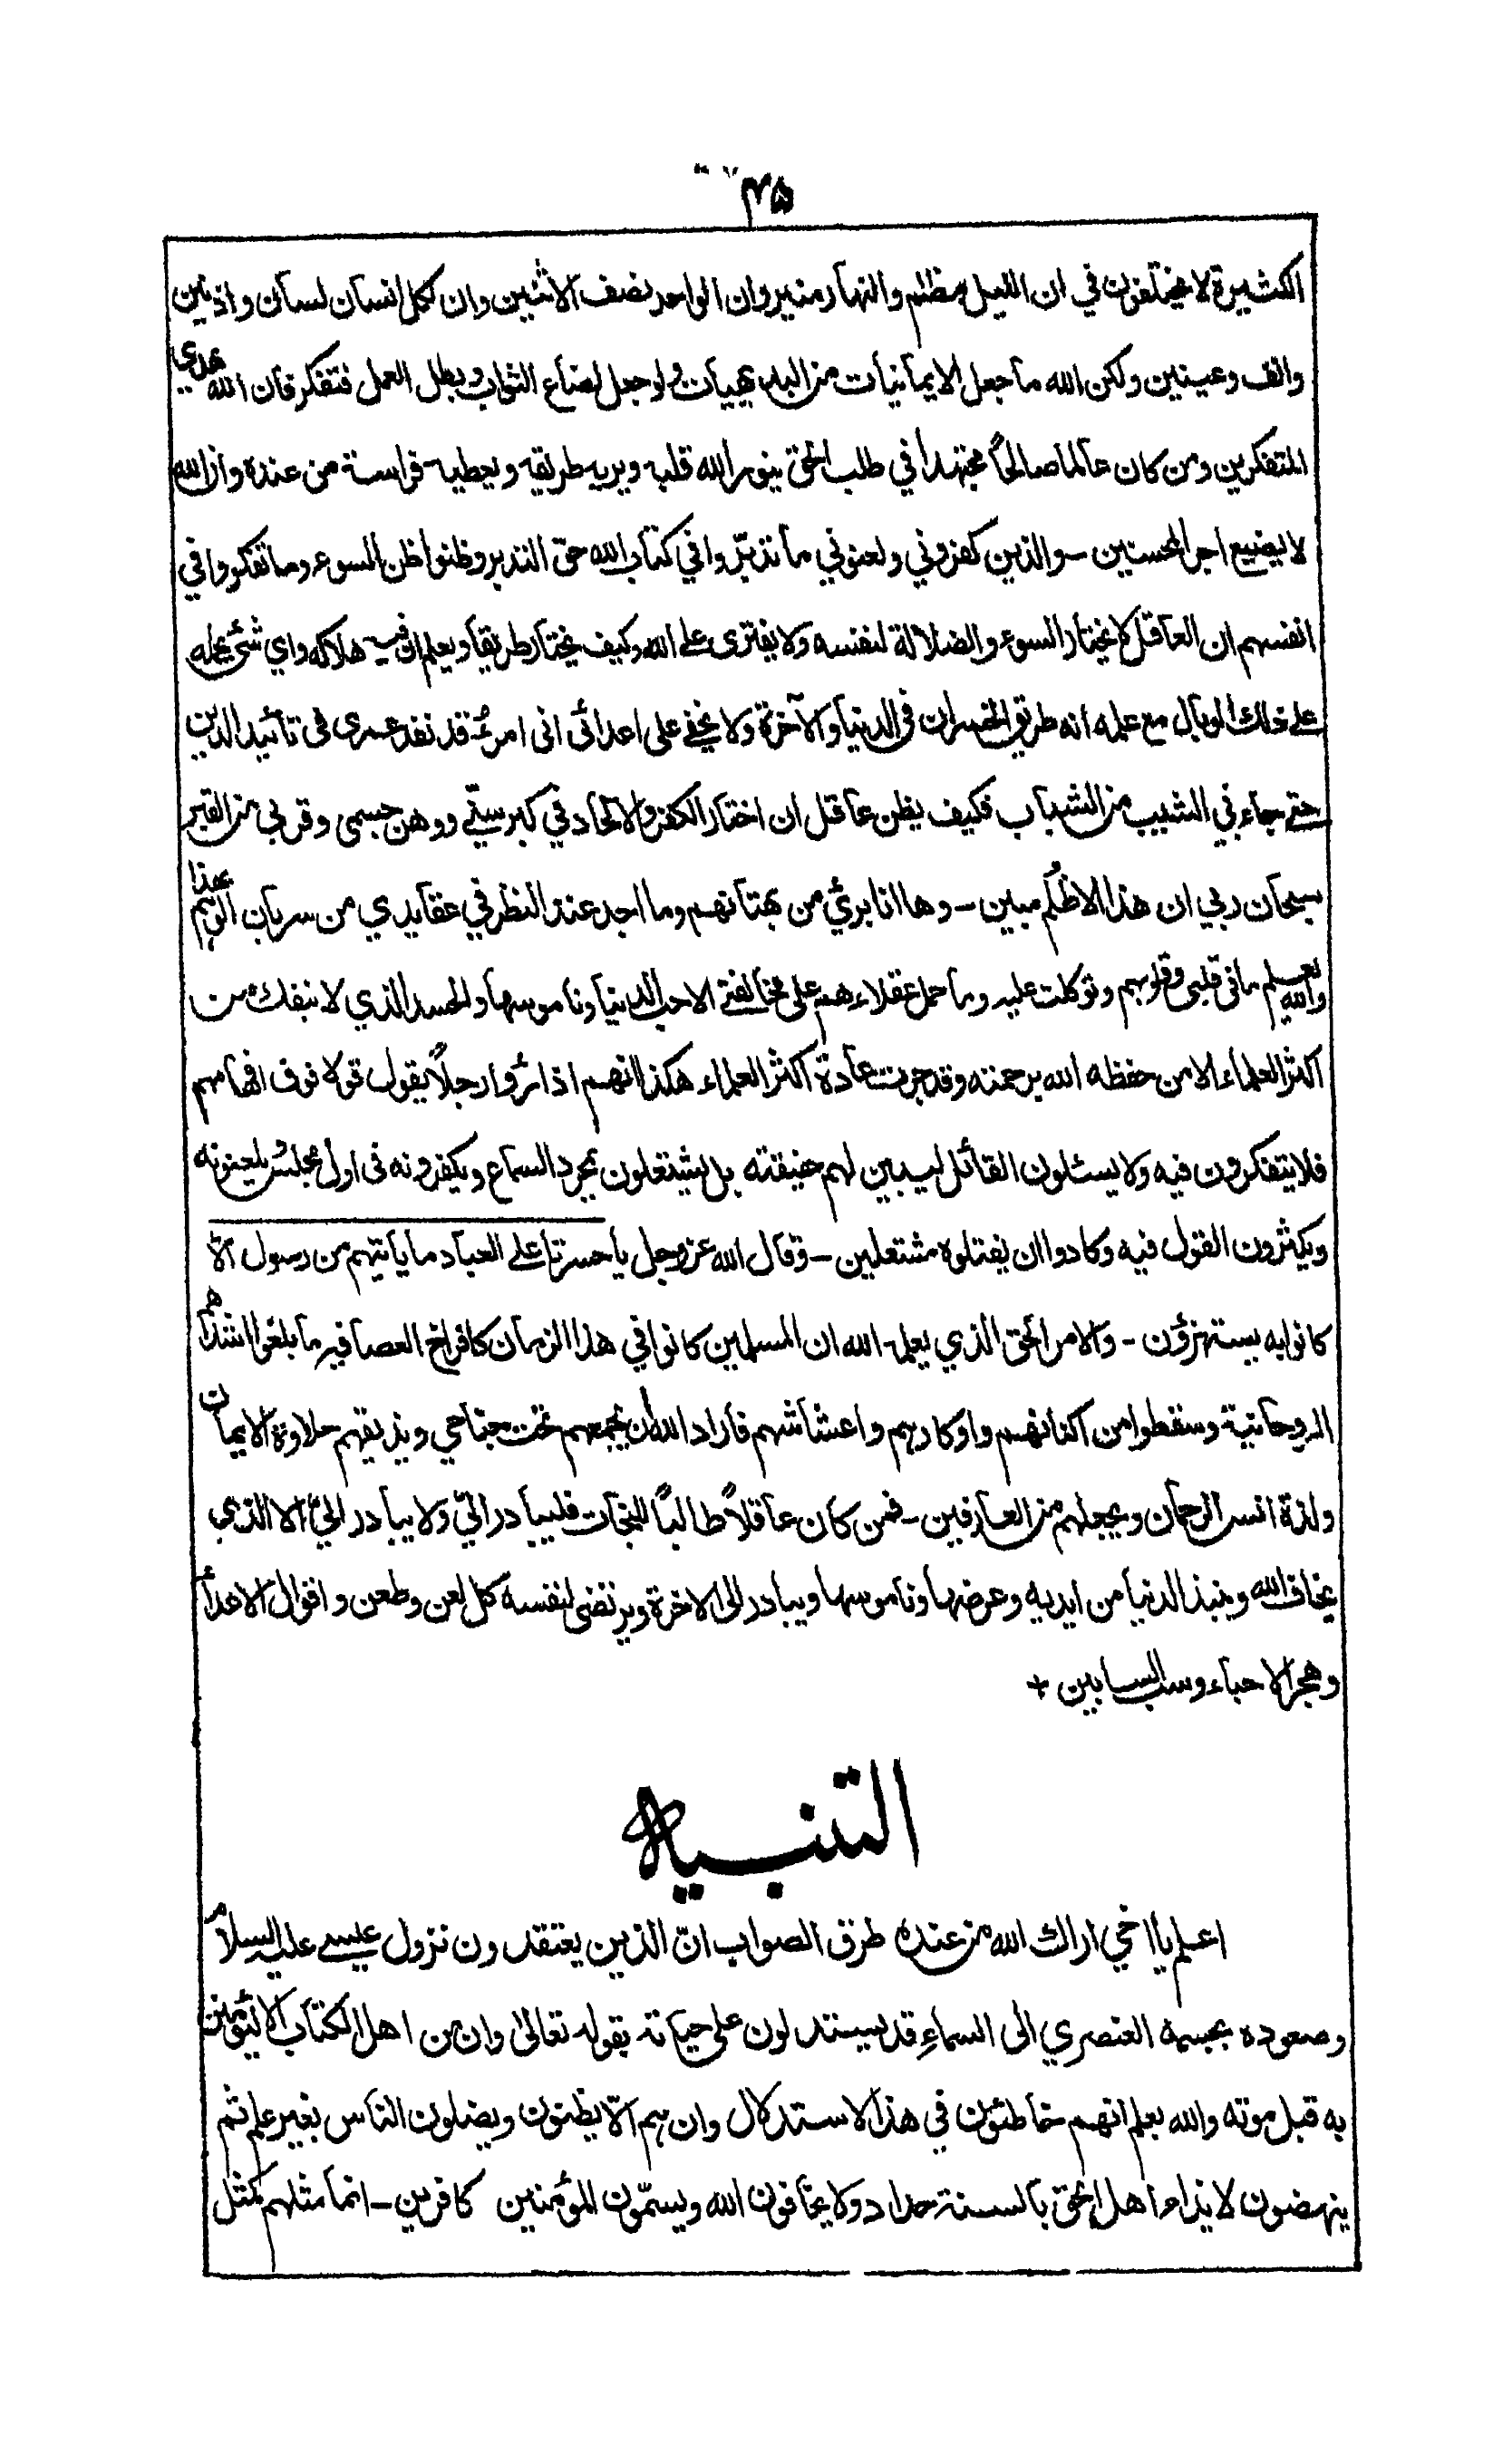 ۴۵
الكثيرة لا يختلفون في ان الليل مظلم والنهار منير وان الواحد نصف الاثنين وان لكل انسان لسان واذنين
وانف وعينين ولكن الله ما جعل الايمانيات من البديهيات ولو جعل لضاع الثواب وبطل العمل فتفكر فان الله يهدي
المتفكرين ومن كان عالما صالحًا مجتهدا في طلب الحق ينور الله قلبه ويريه طريقه ويعطيه فراسة من عنده وان الله
لا يضيع اجر المحسنين - والذين كفروني ولعنوني ما تدبّروا في كتاب الله حق التدبر وظنوا ظن السوء وما تفكروا في
انفسهم ان العاقل لا يختار السوء والضلالة لنفسه ولا يفترى على الله وكيف يختار طريقا ويعلم ان فيه هلاكه واي شئ يحمله
على ذلك الوبال مع علمه انه طريق الخسران فى الدنيا والآخرة ولا يخفى على اعدائى انى امرءٌ قد نفد عمرى فى تائيد الدين
حتى جاءني الشيب من الشباب فكيف يظن عاقل ان اختار الكفر والالحاد في كبر سنّى ووهن جسمى وقربي من القبر
سبحان ربي ان هذا الا ظُلم مبين - وها انا برئ من بهتانهم وما اجد عند النظر في عقايدي من سريان الوهم بهذا
والله يعلم ما فى قلبى وقلوبهم وتوكلت عليه وما حمل عقلاءهم على مخالفتى الا حب الدنيا وناموسها والحسد الذي لا ينفك من
اكثر العلماء الا من حفظه الله برحمته وقد جرت عادة اكثر العلماء هكذا انهم اذا رؤا رجلًا يقول قولا فوق افهامهم
فلا يتفكرون فيه ولا يسئلون القائل ليبين لهم حقيقته بل يشتعلون بمجرد السماع ويكفرونه فى اول مجلس ويلعنونه
ويكثرون القول فيه وكادوا ان يقتلوه مشتعلين - وقال الله عز وجل يا حسرتا على العباد ما ياتيهم من رسول الّا
كانوا به يستهزؤن - والامر الحق الذي يعلمه الله ان المسلمين كانوا في هذا الزمان كافراخ العصافير ما بلغوا اشدّهم
الروحانية وسقطوا من اكنانهم واوكارهم واعشاشهم فاراد الله ان يجمعهم تحت جناحي ويذيقهم حلاوة الايمان
ولذة انس الرحمان ويجعلهم من العارفين - فمن كان عاقلًا طالبًا للنجات فليبادر اليّ ولا يبادر اليّ الا الذي
يخاف الله وينبذ الدنيا من ايديه وعرضها وناموسها ويبادر الى الاخرة ويرتضى لنفسه كل لعن وطعن واقوال الاعداء
وهجر الاحباء وسب السابين +
التنبيه
اعلم يا اخي اراك الله من عنده طرق الصواب انّ الذين يعتقدون نزول عيسى عليه السلام
وصعوده بجسمه العنصري الى السماءِ قد يستدلون على حياته بقوله تعالىٰ وان من اهل الكتاب الا ليؤمنن
به قبل موته والله يعلم انهم خاطئون في هذا الاستدلال وان هم الّا يظنون ويضلون الناس بغير علم ثم
ينهضون لايذاء اهل الحق بالسنة حداد ولا يخافون الله ويسمّون المؤمنين كافرين - انما مثلهم كمثل